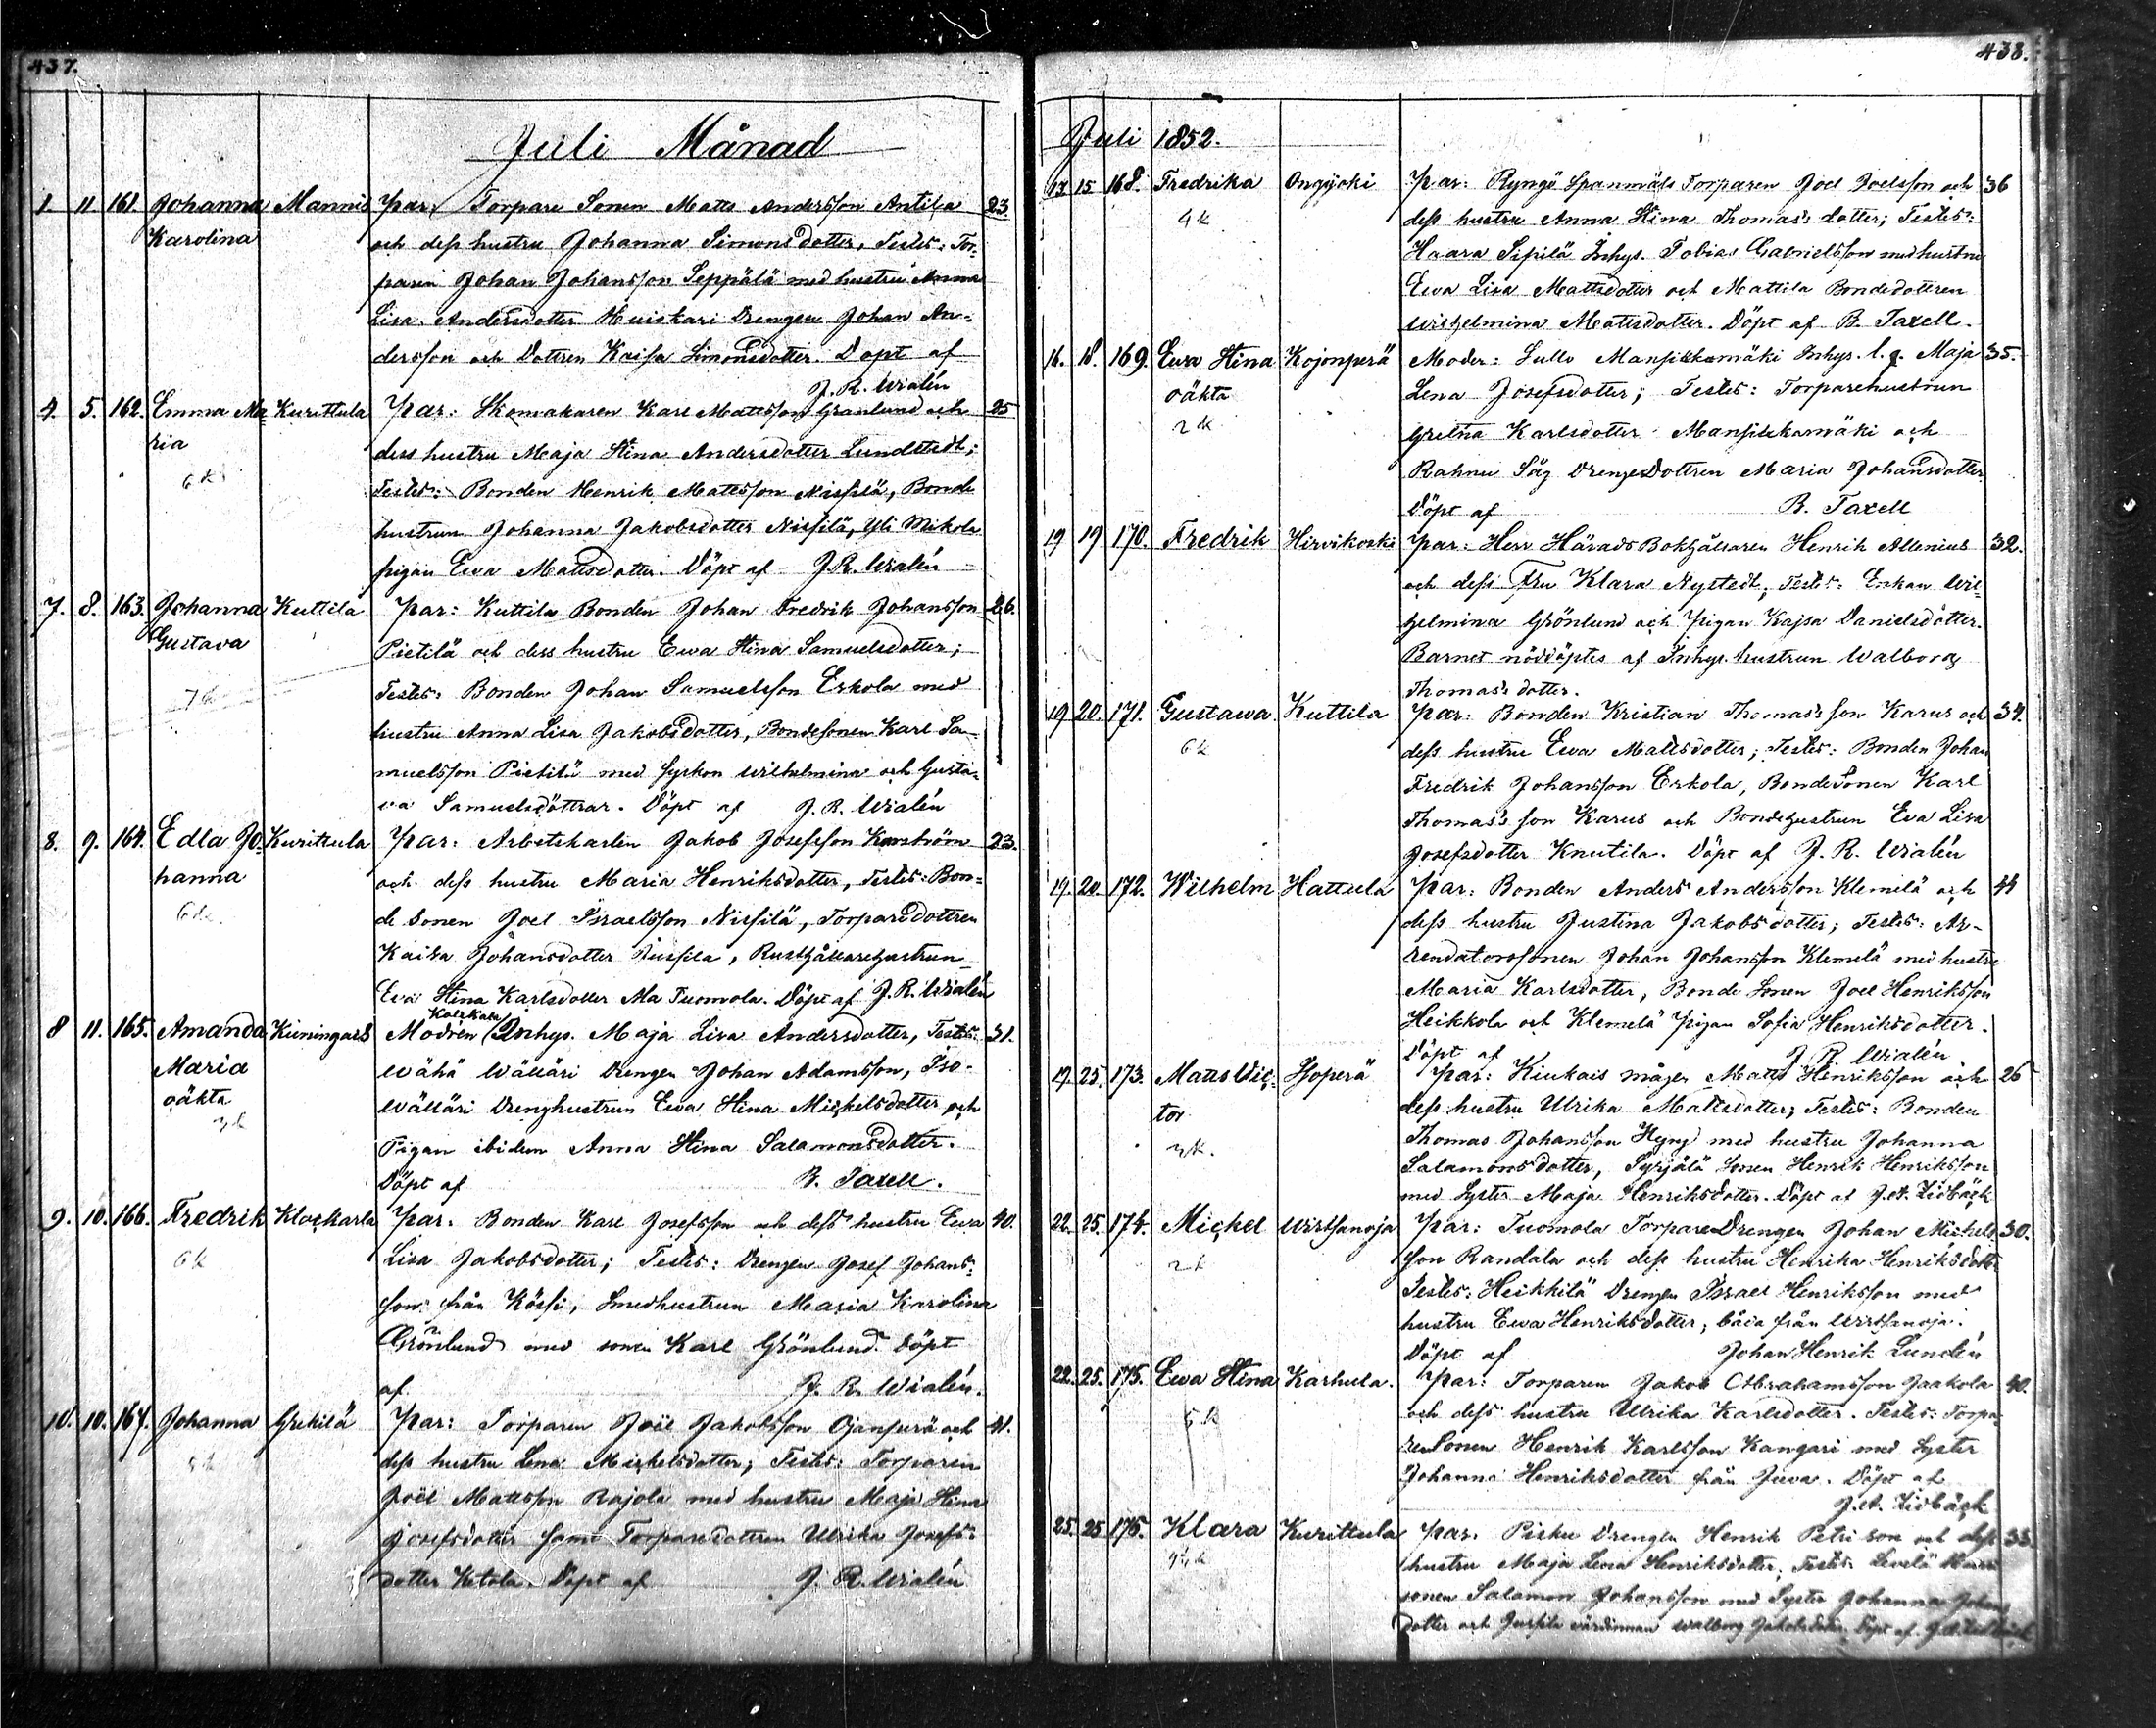 437.
Juli Månad
1. 11. 161. Johanna Mannis Par: Torpare Sonen Matts Andersson Antila 23.
Karolina och dess hustru Johanna Simonsdotter, Testes: Tor-
paren Johan Johansson Seppälä med hustru Anna
Lisa Andersdotter Huiskari Drengen Johan An-
dersson och Dottren Kaisa Simonsdotter. Döpt af
J. R. Wialén
4. 5. 162. Emma Ma- Kurittula Par: Skomakaren Karl Mattsson Granlund och 25
ria dess hustru Maja Stina Andersdotter Lundstedt;
6 k Testes: Bonden Henrik Mattsson Nissilä, Bonde
hustrun Johanna Jakobsdotter Nissilä, Yli Mikola
pigan Ewa Mattsdotter. Döpt af J. R. Wialén
7. 8. 163. Johanna Kuttila Par: Kuttila Bonden Johan Fredrik Johansson 26.
Gustava Pietilä och dess hustru Ewa Stina Samuelsdotter;
7 k Testes: Bonden Johan Samuelsson Erkola med
hustru Anna Lisa Jakobsdotter, Bondesonen Karl Sa-
muelsson Pietilä med syskon Wilhelmina och Gusta-
va Samuelsdöttrar. Döpt af J. R. Wialén
8. 9. 164. Edla Jo- Kurittula Par: Arbetskarlen Jakob Josefsson 23.
hanna och dess hustru Maria Henriksdotter, Testes: Bon-
6 k. de Sonen Joel Israelsson Nissilä, Torparedottren
Kaisa Johansdotter Jussila, Rusthållarehustrun
Eva Stina Karlsdotter Ala Tuomola. Döpt af J. R. Wialén
8 11. 165. Amanda Kieningais Modren Inhys. Maja Lisa Andersdotter, Testes: 31.
Maria Wähä Wälläri Drengen Johan Adamsson, Iso-
oäkta Wälläri Drenghustrun Ewa Stina Mickelsdotter och
Pigan ibidem Anna Stina Salamonsdotter.
Döpt af B. Taxell.
9. 10. 166. Fredrik Klockarla Par: Bonden Karl Josefsson och dess hustru Ewa 40.
6 k Lisa Jakobsdotter; Testes: Drengen Josef Johans-
son från Kössi, Smedhustrun Maria Karolina
Grönlund med sonen Karl Grönlund. Döpt
af J. R. Wialén.
10. 10. 167. Johanna Grekilä Par: Torparen Joël Jakobsson Ojanperä och 41.
dess hustru Lena Mickelsdotter; Testes: Torparen
Joël Mattsson Rajola med hustru Maja Stina
Josefsdotter samt Torparedottren Ulrika Josefs-
dotter Ketola. Döpt af J. R. Wialén
438.
Juli 1852.
13. 15. 168. Fredrika Ongijoki Par: Ryngö Spannmåls Torparen Joel Joelsson och 36
4 k dess hustru Anna Stina Thomasdotter; Testes:
Haara Sipilä Inhys. Tobias Gabrielsson med hustru
Ewa Lisa Mattsdotter och Mattila Bondedottren
Wilhelmina Mattsdotter. Döpt af B. Taxell.
16. 18. 169. Ewa Stina Kojonperä Moder: Sullo Mansikkamäki Inhys. l. q. Maja 35.
oäkta Lena Josefsdotter; Testes: Torparehustrun
2 k Gretha Karlsdotter Mansikkamäki och
Rahnu Säg DrengeDottren Maria Johansdotter.
Döpt af B. Taxell
19 19 170. Fredrik Hirvikoski Par: Herr HäradsBokhållaren Henrik Allenius 32.
och dess Fru Klara Nystedt, Testes: Enkan Wil-
helmina Grönlund och Pigan Kajsa Danielsdotter.
Barnet nöddöptes af Inhys. hustrun Walborg
Thomasdotter.
19 20. 171. Gustawa Kuttila Par: Bonden Kristian Thomasson Karus och 34.
6 k dess hustru Ewa Mattsdotter; Testes: Bonden Johan
Fredrik Johansson Erkola, BondeSonen Karl
Thomasson Karus och Bondehustrun Eva Lisa
Josefsdotter Knutila. Döpt af J. R. Wialén
19. 20. 172. Wilhelm Hattula Par: Bonden Anders Andersson Klemelä och 44
dess hustru Justina Jakobsdotter; Testes: Ar-
rendatorssonen Johan Johansson Klemelä med hustru
Maria Karlsdotter, Bonde Sonen Joel Henriksson
Heikkola och Klemelä Pigan Sofia Henriksdotter.
Döpt af J. R. Wialén
19. 25. 173. Matts Vic- Isoperä Par: Kiukais mågen Matts Henriksson och 26
tor dess hustru Ulrika Mattsdotter; Testes: Bonden
3 k. Thomas Johansson Hyng med hustru Johanna
Salamonsdotter, Syrjälä Sonen Henrik Henriksson
med Syster Maja Henriksdotter. Döpt af J. A. Lidbäck
22. 25. 174. Mickel Wirtsanoja Par: Tuomola TorpareDrengen Johan Mickels- 30.
2 k son Randala och dess hustru Henrika Henriksdott.
Testes: Heikkilä Drengen Israel Henriksson med
hustru Ewa Henriksdotter, båda från Wirtsanoja.
Döpt af Johan Henrik Lundén
22. 25. 175. Ewa Stina Karhula. Par: Torparen Jakob Abrahamsson Jaakola 40.
5 k och dess hustru Ulrika Karlsdotter. Testes: Torpa-
reSonen Henrik Karlsson Kangari med Syster
Johanna Henriksdotter från Juva. Döpt af
J. A. Lidbäck
25. 25 176. Klara Kurittula Par: Pisku Drengen Henrik Petrison och dess 35.
hustru Maja Lena Henriksdotter, Testes:
sonen Salamon Johansson med Syster Johanna Johans
dotter och Jussila värdinnan Walborg Jakobsdotter. Döpt af J. A. Lidbäck